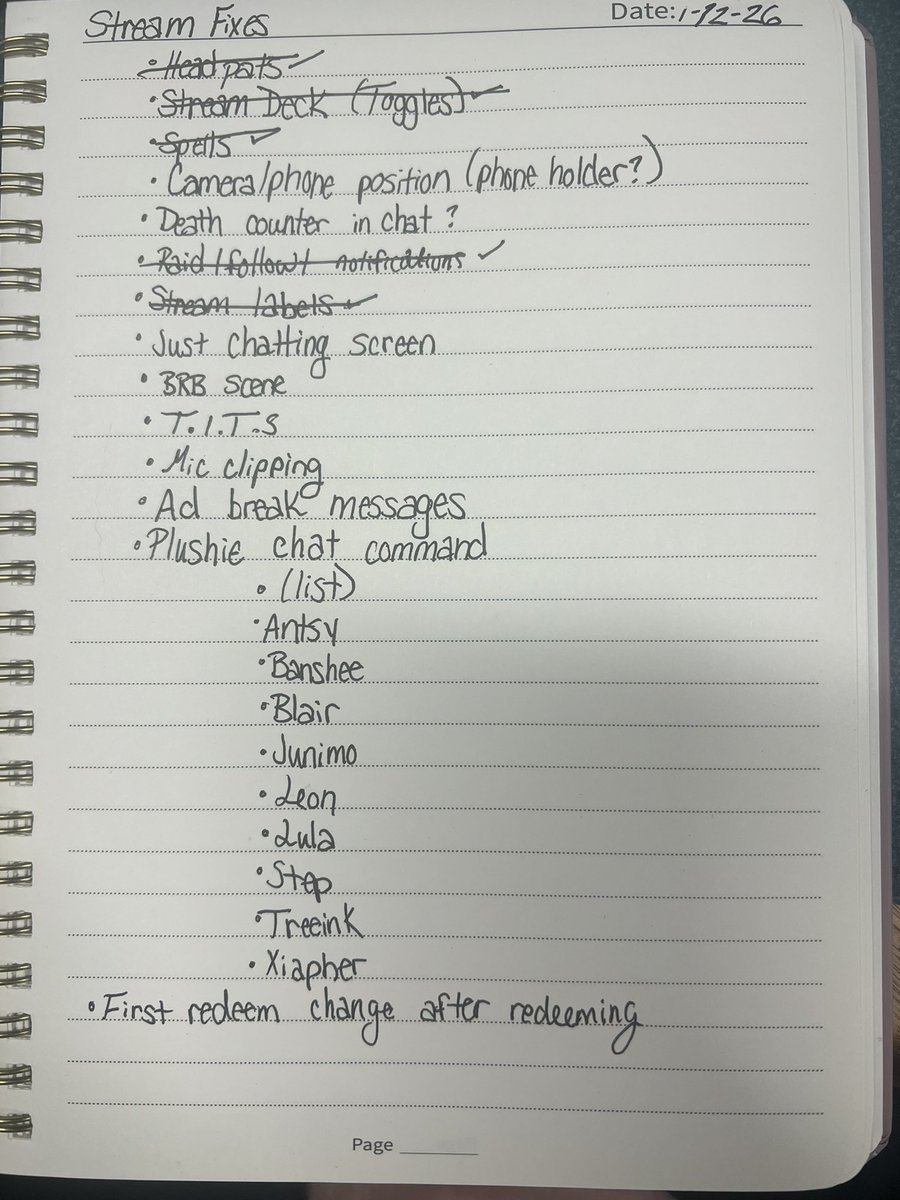 Stream Fixes
Date: 1-12-26
• Head pats ✓
• Stream Deck (Toggles) ✓
• Spells ✓
• Camera/phone position (phone holder?)
• Death counter in chat?
• Raid/follow/ notifications ✓
• Stream labels ✓
• Just chatting screen
• BRB scene
• T.I.T.S
• Mic clipping
• Ad break messages
• Plushie chat command
• (list)
• Antsy
• Banshee
• Blair
• Junimo
• Leon
• Lula
• Step
• Treeink
• Xiapher
• First redeem change after redeeming
Page